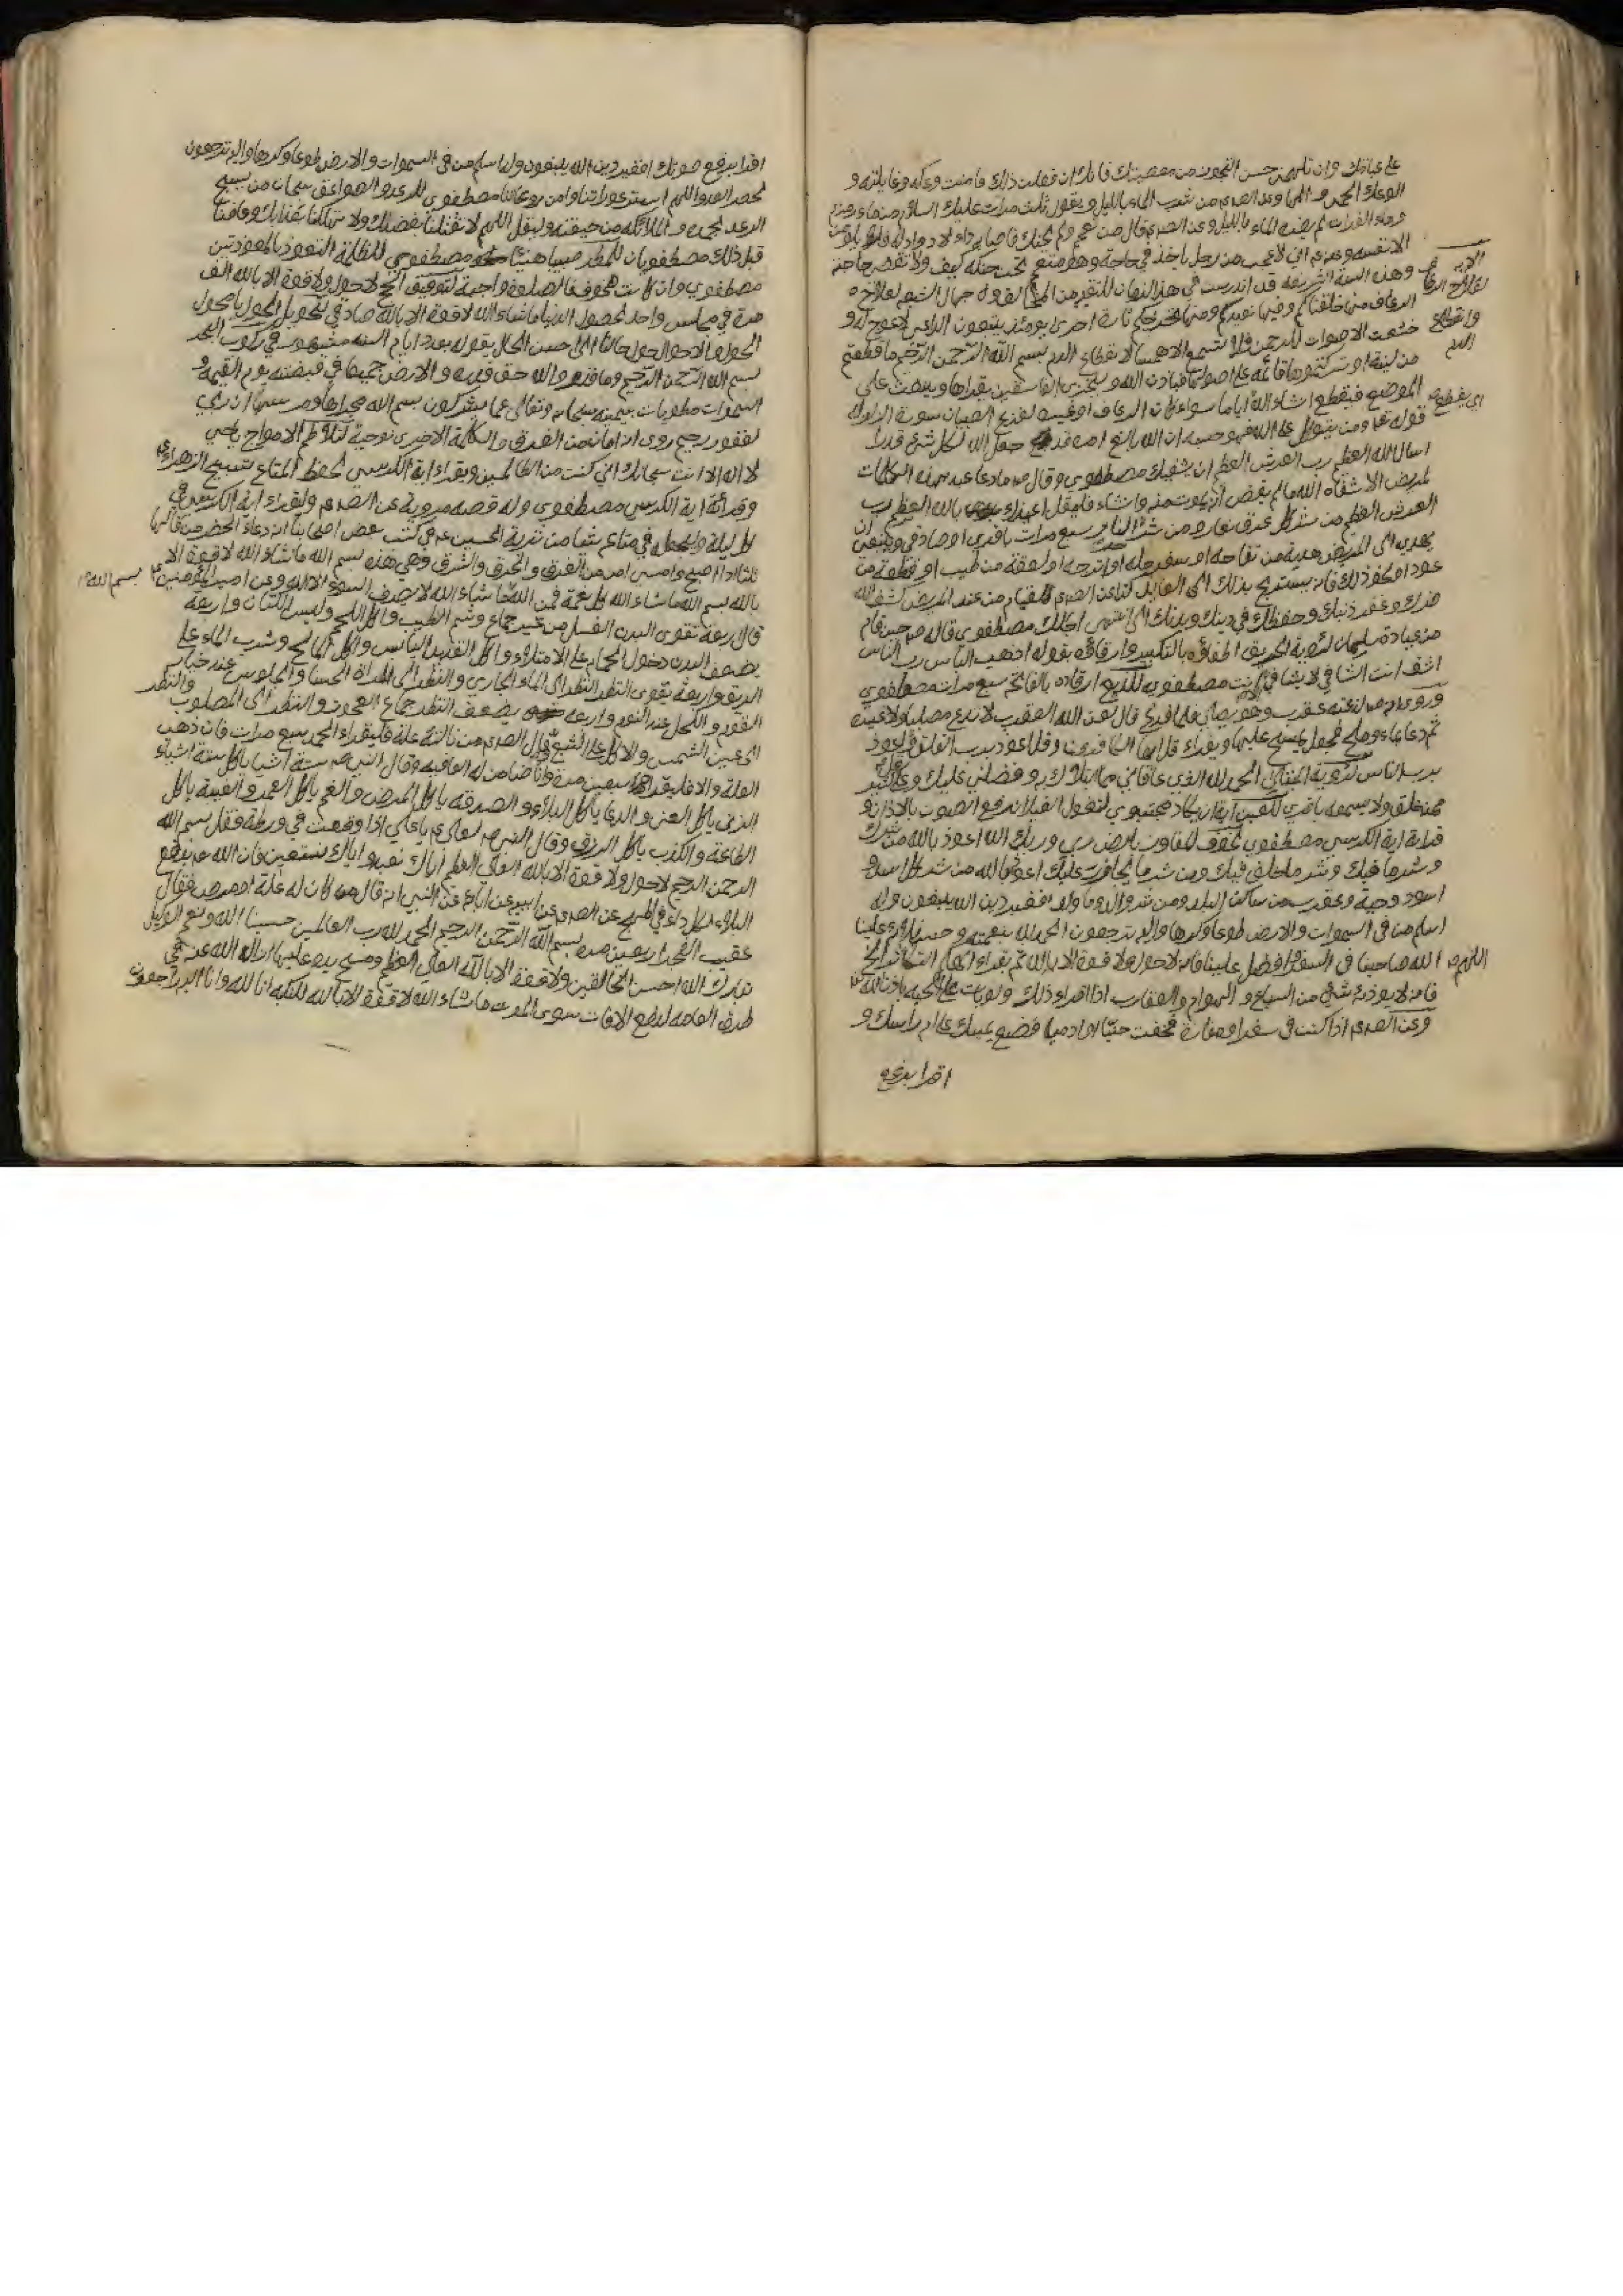 على عبادتك وان تلهمني حسن التجوز من معصيتك فانك ان فعلت ذلك فامنت وعكه وغايلته و
الوعك الحمى من شرب الماء بالليل ويقول ثلث مرات عليك السلام من ماء زمزم
وماء الفرات لم يضره الماء بالليل وعن الصادق قال من تعمم ولم يحنك فاصابه داء لا دواء له فلا يلومن
الا نفسه وعنه اني لاعجب من رجل ياخذ في حاجة وهو متعمم تحت حنكه كيف لا تقضى حاجته
وهذه السنة الشريفة قد اندرست في هذا الزمان
الرعاف منها خلقناكم وفيها نعيدكم ومنها نخرجكم تارة اخرى يومئذ يتبعون الداعي لا عوج له و
خشعت الاصوات للرحمن فلا تسمع الا همسا لانقطاع الدم بسم الله الرحمن الرحيم ما قطعتم
من لينة او تركتموها قائمة على اصولها فباذن الله وليخزي الفاسقين يقراها
الموضع فينقطع انشاء الله اياما سواء كان الرعاف او غيره لفزع الصبيان سورة الزلزلة
قوله تعالى ومن يتوكل على الله فهو حسبه ان الله بالغ امره قد جعل الله لكل شيء قدرا
اسال الله العظيم رب العرش العظيم ان يشفيك مصطفوي وقال ما دعا عبد بهذه الكلمات
لمريض الا شفاه الله ما لم يقض انه يموت منه وانشاء فليقل اعيذك بالله العظيم رب
العرش العظيم من شر كل عرق نعار ومن شر حر النار سبع مرات باقري او صادقي وينبغي ان
يهدي الى المريض هدية من تفاحة او سفرجلة او اترجة او لعقة من طيب او قطعة من
عود او نحو ذلك فانه يستريح بذلك للقيام من عند المريض شفى الله
ضرك وغفر ذنبك وحفظك في دينك وبدنك الى منتهى اجلك مصطفوي قاله حين قام
من عيادة سلمان لرؤية الحريق اطفاؤه بالتكبير وارقاؤه بقوله اذهب الباس رب الناس
اشف انت الشافي لا شافي الا انت مصطفويه للديغ ارقاده بالفاتحة سبع مرات مصطفوي
وروي لدغته عقرب وهو يصلي فلما فرغ قال لعن الله العقرب لا تدع مصليا ولا غيره
ثم دعا بماء وملح فجعل يمسح عليها ويقراء قل يا ايها الكافرون وقل اعوذ برب الفلق وقل اعوذ
برب الناس لرؤية المبتلى الحمد لله الذي عافاني مما ابتلاك به وفضلني عليك وعلى كثير
ممن خلق ولا يسمعه باقري للعين اية ان يكاد مجتبوي لتغول الغيلان رفع الصوت بالاذان و
قراءة اية الكرسي مصطفوي يا ارض ربي وربك الله اعوذ بالله من شرك
وشر ما فيك وشر ما خلق فيك ومن شر ما يحاذر عليك اعوذ بالله من شر كل اسد و
اسود وحية وعقرب من ساكن البلد ومن شر والد وما ولد افغير دين الله يبغون وله
اسلم من في السموات والارض طوعا وكرها واليه ترجعون الحمد لله بنعمته وحسن بلائه علينا
اللهم صاحبنا في السفر وافضل علينا فانه لا حول ولا قوة الا بالله ثم يقراء الهاكم التكاثر الخ
فانه لا يوذيه شيء من السباع والهوام والعقارب اذا قراء ذلك ولو بات على الحية باذن الله
وعن الصادق اذا كنت في سفر او مفازة فخفت جنيا او ادميا فضع يمينك على ام راسك و
اقرا برفع
اقرا برفع صوتك افغير دين الله يبغون وله اسلم من في السموات والارض طوعا وكرها واليه ترجعون
لحصر العدو اللهم استر عوراتنا وامن روعاتنا مصطفوي للرعد والصواعق سبحان من يسبح
الرعد بحمده والملائكة من خيفته وليقل اللهم لا تقتلنا بغضبك ولا تهلكنا بعذابك وعافنا
قبل ذلك مصطفويان للمطر صيبا هنيئا مصطفوي للظلمة التعوذ بالمعوذتين
مصطفوي وان كانت لتوفيق الحج لا حول ولا قوة الا بالله الف
مرة في مجلس واحد لحصول الدنيا ما شاء الله لا قوة الا بالله صادقي لتحويل الحول يا محول
الحول والاحوال حول حالنا الى احسن الحال يقوله بعدد ايام السنة مشهور في ركوب البحر
بسم الله الرحمن الرحيم وما قدروا الله حق قدره والارض جميعا قبضته يوم القيمة و
السموات مطويات بيمينه سبحانه وتعالى عما يشركون بسم الله مجراها ومرسيها ان ربي
لغفور رحيم روى انه امان من الغرق لتلاطم الامواج يا حي
لا اله الا انت سبحانك اني كنت من الظالمين ويقراء اية الكرسي لحفظ المتاع تسبيح الزهراء
وقرائة اية الكرسي مصطفوي وله قصه مروية عن الصادق وليقراء اية الكرسي في
كل ليلة وليجعل في متاعه شيئا من تربة الحسين في كتب بعض اصحابنا ان دعاء الخضر من قالها
ثلثا اذا اصبح وامسى امن من الغرق والحرق والشرق وهي هذه بسم الله ما شاء الله لا قوة الا
بالله بسم الله ما شاء الله كل نعمة فمن الله ما شاء الله لا يصرف السوء الا الله وعن امير المؤمنين
قال اربعة تقوى البدن الغسل من غير جماع وشم الطيب واكل اللحم ولبس الكتان واربعة
يضعف البدن دخول الحمام على الامتلاء واكل القديد اليابس واكل المالح وشرب الماء على
الريق واربعة يقوى النظر النظر الى الماء الجاري والنظر الى المراة الحسنا والجلوس عند
والكحل عند النوم واربعة يضعف النظر جماع العجوز والنظر الى المصلوب والنظر
الى عين الشمس والاكل على الشبع وقال الصادق من نالته علة فليقراء الحمد سبع مرات فان ذهب
العلة والا فليقراها سبعين مرة وانا ضامن له العافيه وقال النبي ستة اشيا ياكل ستة اشياء
الزنى ياكل الغنى والربا ياكل البلاء والصدقة ياكل المرض والغم ياكل العمر والغيبة ياكل
الطاعة والكذب ياكل الرزق وقال النبي لعلي يا علي اذا وقعت في ورطة فقل بسم الله
الرحمن الرحيم لا حول ولا قوة الا بالله العلي العظيم اياك نعبد واياك نستعين فان الله يدفع
البلاء لكل داء عن ابيه عن ابائه عن النبي انه قال من كان له علة فقال
عقيب الفجر اربعين مرة بسم الله الرحمن الرحيم الحمد لله رب العالمين حسبنا الله ونعم الوكيل
تبارك الله احسن الخالقين ولا قوة الا بالله العلي العظيم ومسح يده عليها ازاله الله عنه في
طرف العامه لدفع الافات سوى الموت ما شاء الله لا قوة الا بالله للنكبة انا لله وانا اليه راجعون